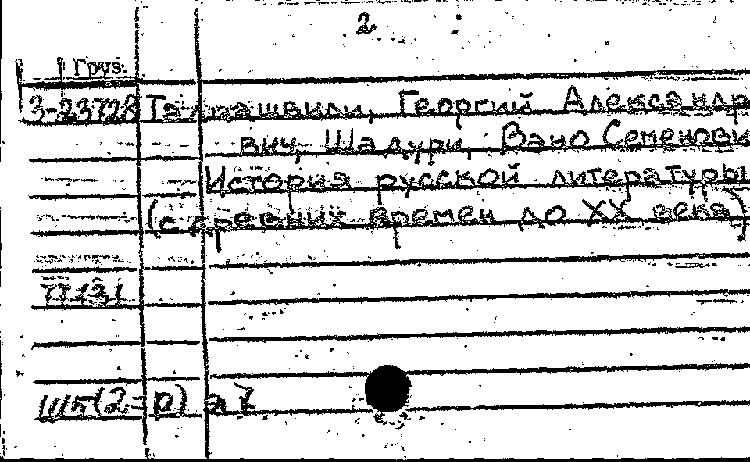 2
Груз.
3-23728 Талиашвили, Георгий Александр
вич, Шадури, Вано Семенови
История русской литературы
(с древних времен до XX века)